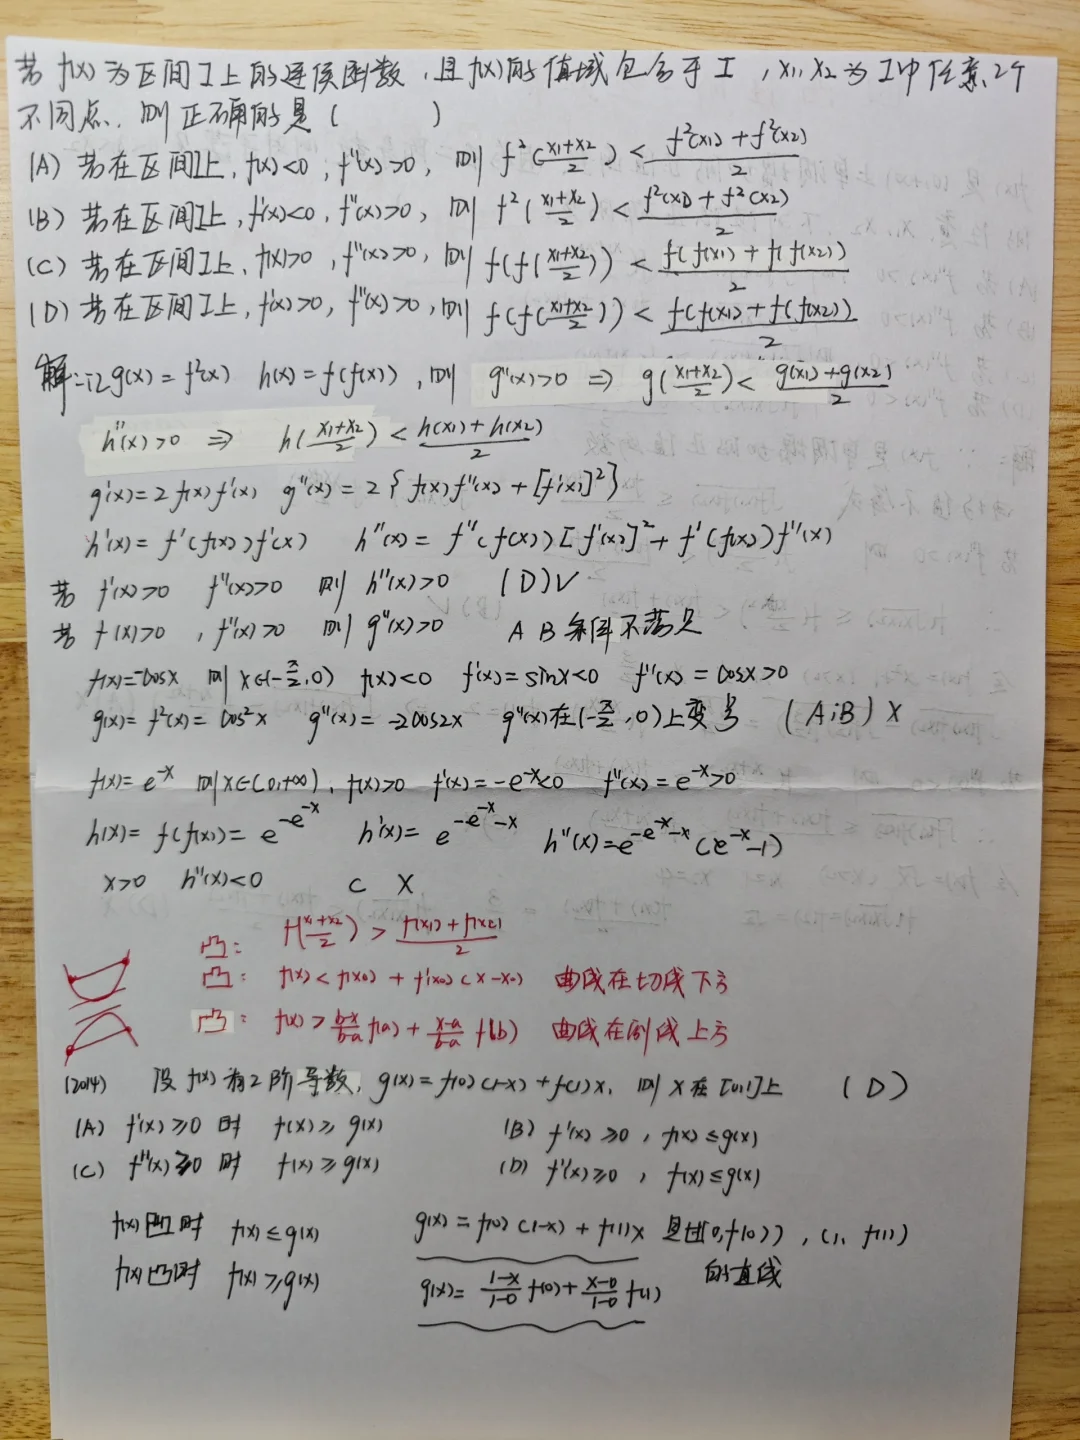 若f(x)为区间I上的连续函数,且f(x)的值域包含于I,x₁,x₂为I中任意2个
不同点,则正确的是( )
(A) 若在区间I上,f(x)<0,f''(x)>0,则 f²((x₁+x₂)/2) < (f²(x₁)+f²(x₂))/2
(B) 若在区间I上,f'(x)<0,f''(x)>0,则 f²((x₁+x₂)/2) < (f²(x₁)+f²(x₂))/2
(C) 若在区间I上,f(x)>0,f''(x)>0,则 f(f((x₁+x₂)/2)) < (f(f(x₁))+f(f(x₂)))/2
(D) 若在区间I上,f'(x)>0,f''(x)>0,则 f(f((x₁+x₂)/2)) < (f(f(x₁))+f(f(x₂)))/2
解:记g(x)=f²(x) h(x)=f(f(x)),则 g''(x)>0 ⇒ g((x₁+x₂)/2) < (g(x₁)+g(x₂))/2
h''(x)>0 ⇒ h((x₁+x₂)/2) < (h(x₁)+h(x₂))/2
g'(x)=2f(x)f'(x) g''(x)=2{f(x)f''(x)+[f'(x)]²}
h'(x)=f'(f(x))f'(x) h''(x)=f''(f(x))[f'(x)]²+f'(f(x))f''(x)
若 f'(x)>0 f''(x)>0 则 h''(x)>0 (D)√
若 f(x)>0,f''(x)>0 则 g''(x)>0 A B条件不满足
f(x)=-cosx 则x∈(-π/2,0) f(x)<0 f'(x)=sinx<0 f''(x)=cosx>0
g(x)=f²(x)=cos²x g''(x)=-2cos2x g''(x)在(-π/2,0)上变号 (A,B)X
f(x)=e^(-x) 则x∈(0,+∞),f(x)>0 f'(x)=-e^(-x)<0 f''(x)=e^(-x)>0
h(x)=f(f(x))=e^(-e^(-x)) h'(x)=e^(-e^(-x)-x) h''(x)=e^(-e^(-x)-x)(e^(-x)-1)
x>0 h''(x)<0 C X
凸: f((x₁+x₂)/2) > (f(x₁)+f(x₂))/2
凸: f(x)<f(x₀)+f'(x₀)(x-x₀) 曲线在切线下方
凸: f(x)>(b-x)/(b-a) f(a)+(x-a)/(b-a) f(b) 曲线在割线上方
(2014) 设f(x)有2阶导数,g(x)=f(0)(1-x)+f(1)x,则x在[0,1]上 (D)
(A) f'(x)≥0时 f(x)≥g(x) (B) f'(x)≥0,f(x)≤g(x)
(C) f''(x)≥0时 f(x)≥g(x) (D) f''(x)≥0,f(x)≤g(x)
f(x)凹时 f(x)≤g(x) g(x)=f(0)(1-x)+f(1)x 是过(0,f(0)),(1,f(1))
f(x)凸时 f(x)≥g(x) g(x)=(1-x)/(1-0) f(0)+(x-0)/(1-0) f(1) 的直线